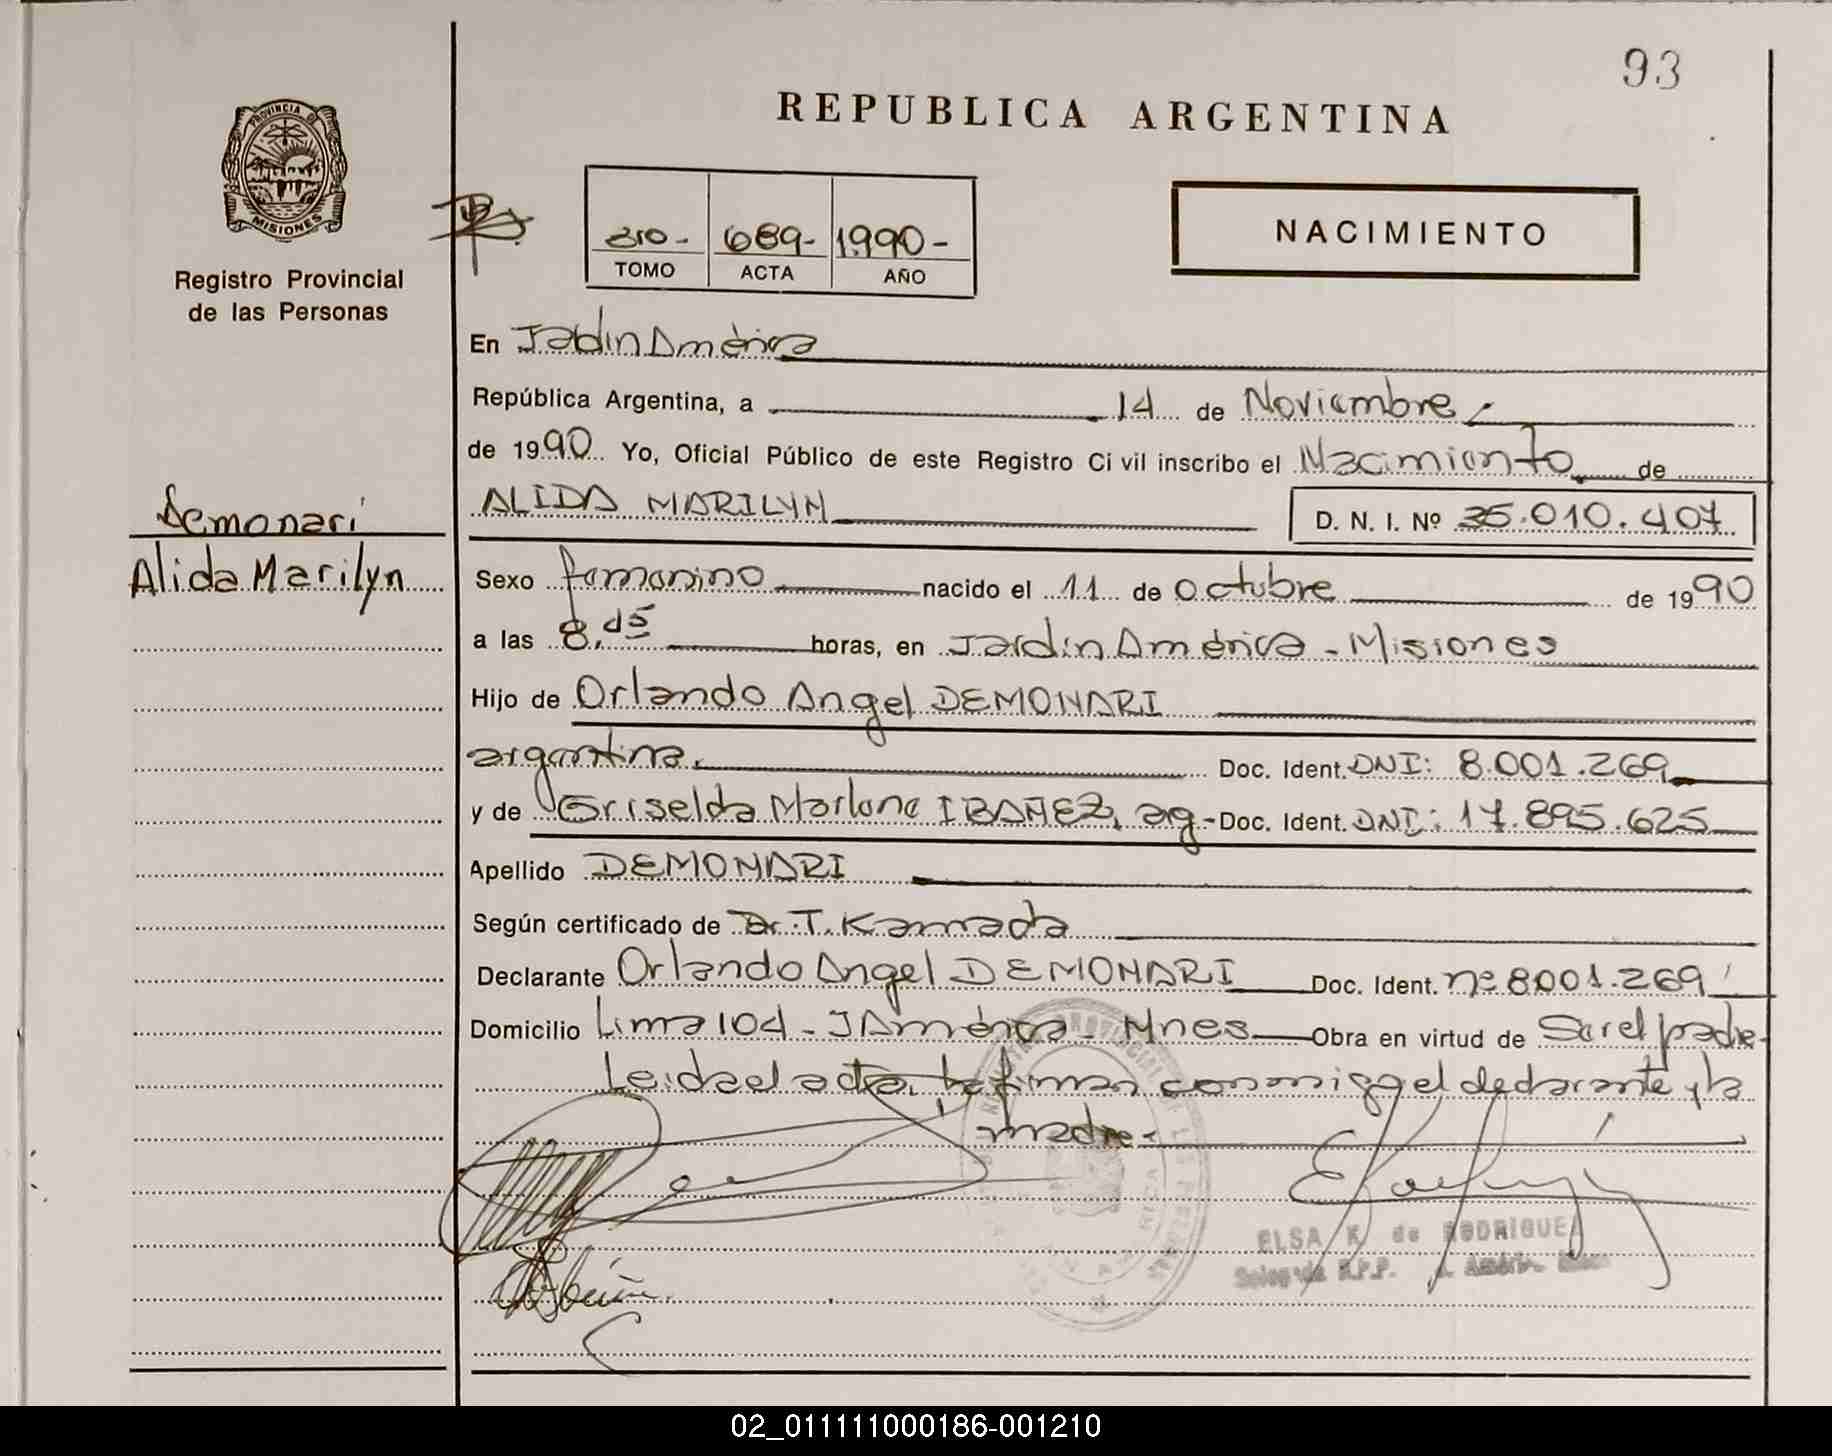 93
REPUBLICA ARGENTINA
PROVINCIA DE
MISIONES
Registro Provincial
de las Personas
310- 689- 1990-
TOMO ACTA AÑO
NACIMIENTO
En Jardin América
República Argentina, a 14 de Noviembre
de 1990 Yo, Oficial Público de este Registro Civil inscribo el Nacimiento de
ALIDA MARILYN D. N. I. Nº 35.010.407
Demonari
Alida Marilyn
Sexo femenino nacido el 11 de Octubre de 1990
a las 8, horas, en Jardin América - Misiones
Hijo de Orlando Angel DEMONARI
argentina. Doc. Ident. DNI: 8.001.269
y de Griselda Marlene IBAÑEZ, ag- Doc. Ident. DNI: 17.895.625
Apellido DEMONARI
Según certificado de Dr. T. Kamada
Declarante Orlando Angel DEMONARI Doc. Ident. nº 8001.269
Domicilio Lima 104 - J América - Mnes Obra en virtud de Ser el padre-
Leida el acta, la firman conmigo el declarante y la
madre-
ELSA K de RODRIGUE
R.P.P.
02_011111000186-001210